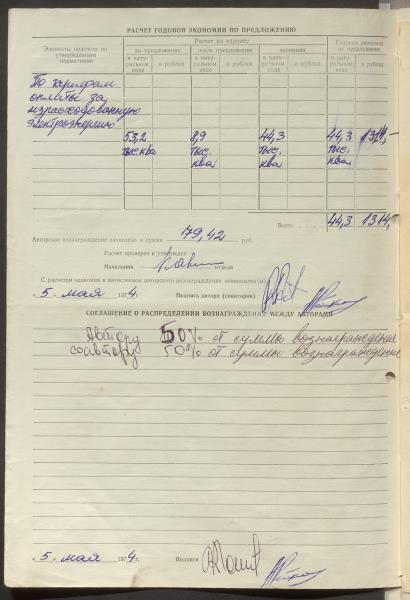 РАСЧЕТ ГОДОВОЙ ЭКОНОМИИ ПО ПРЕДЛОЖЕНИЮ
Элементы подсчета по утвержденным нормативам
Расчет на единицу
Годовая экономия от предложения
до предложения
после предложения
экономия
в натуральном виде
в рублях
в натуральном виде
в рублях
в натуральном виде
в рублях
в натуральном виде
в рублях
По тарифам
оплаты за
израсходованную
электроэнергию
53,2 8,9 44,3 44,3 1311,-
тыс. тыс. тыс.
Всего 44,3 1314,
Авторское вознаграждение начислено в сумме 179,42 руб.
Расчет проверен и утвержден
Начальник отдела
С расчетом экономии и начислением авторского вознаграждения
5 мая 1974.
Подпись автора (соавторов)
СОГЛАШЕНИЕ О РАСПРЕДЕЛЕНИИ ВОЗНАГРАЖДЕНИЯ МЕЖДУ АВТОРАМИ
Автору 50% от суммы вознаграждения
соавтору 50% от суммы вознаграждения
5 мая 1974 г.
Подписи